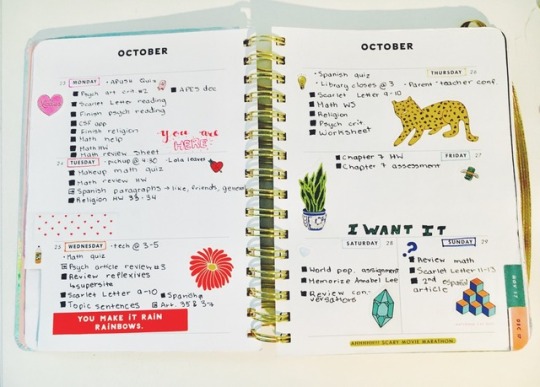 OCTOBER
23 MONDAY - APUSH Quiz
Psych art crit #2
APES doc
Scarlet Letter reading
Finish psych reading
CSF app
Finish religion
Math help
Math HW
Math review sheet
you are
HERE:
24 TUESDAY - pickup @ 4:30 - Lola leaves
Makeup math quiz
Math review HW
Spanish paragraphs → like, friends, gener
Religion HW 33-34
25 WEDNESDAY - tech @ 3-5
- Math quiz
Psych article review #3
Review reflexives
4supersite
Scarlet Letter 9-10
Spanish
Topic sentences
Art. 35 &
YOU MAKE IT RAIN
RAINBOWS.
OCTOBER
THURSDAY 26
- Spanish quiz
- Library closes @ 3 - Parent teacher conf.
Scarlet Letter 9-10
Math WS
Religion
Psych crit
Worksheet
FRIDAY 27
Chapter 7 HW
Chapter 7 assessment
I WANT IT
SATURDAY 28
World pop. assignment
Memorize Annabel Lee
Review con-
versations
SUNDAY 29
?
Review math
Scarlet Letter 11-13
2nd español
article
AHHHHHH! SCARY MOVIE MARATHON.
NOV
DEC